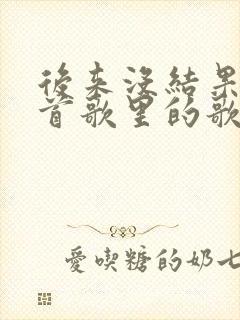 後来没結果
首歌里的歌
愛喫糖的奶七